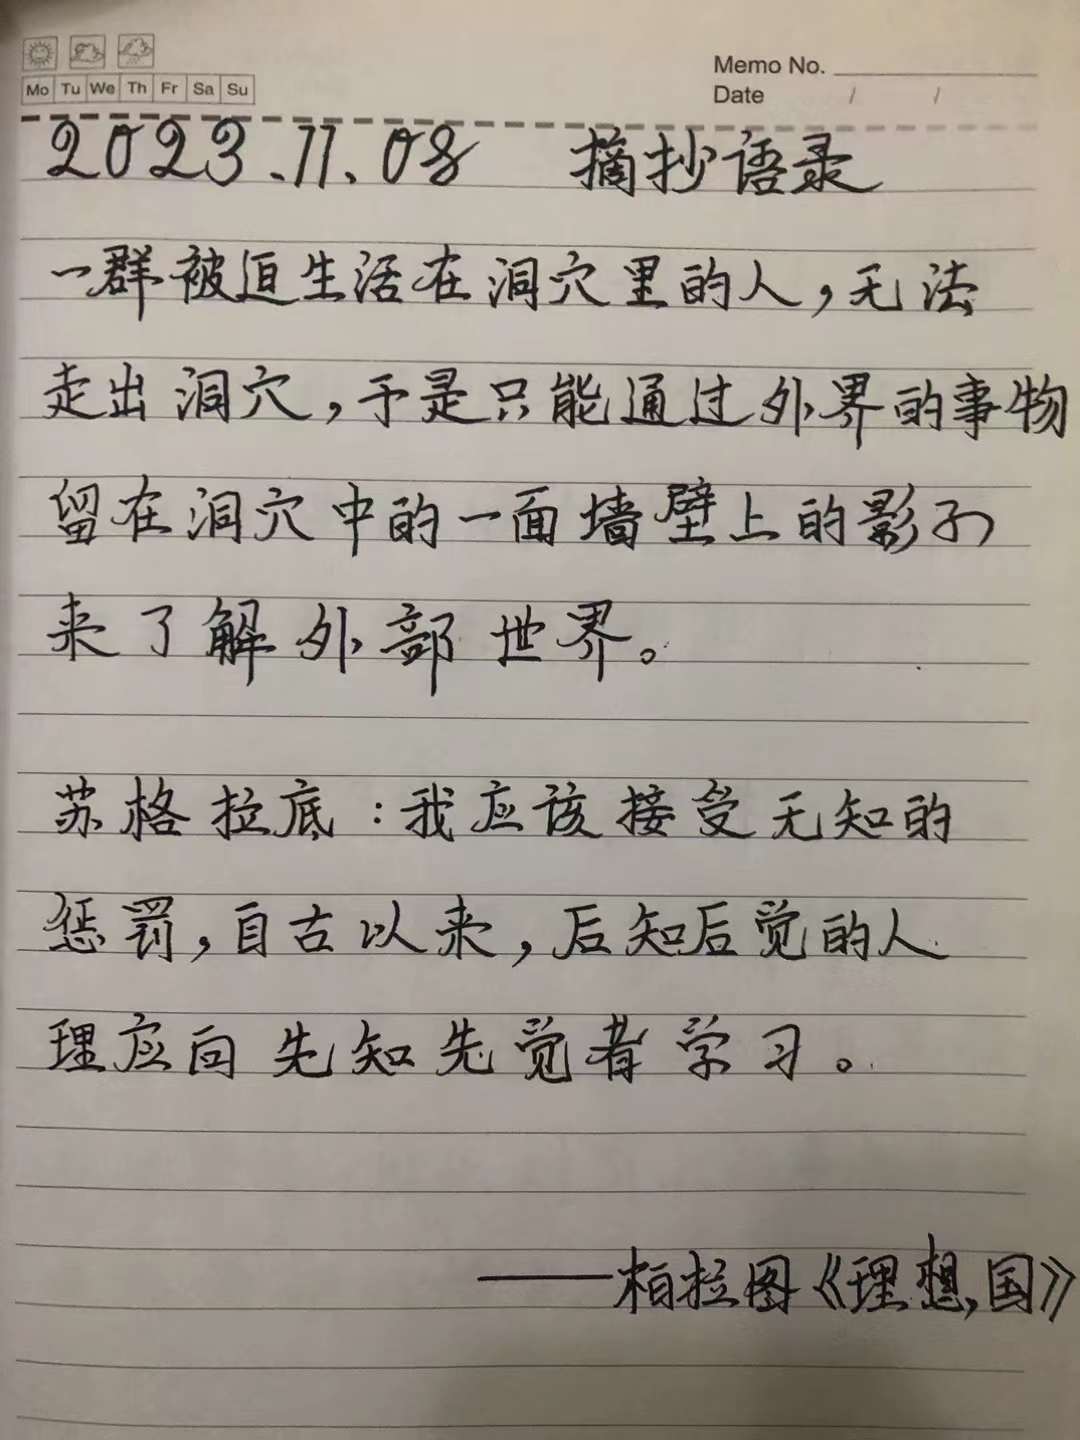 Mo Tu We Th Fr Sa Su
Memo No.
Date / /
2023.11.08 摘抄语录
一群被迫生活在洞穴里的人,无法
走出洞穴,于是只能通过外界的事物
留在洞穴中的一面墙壁上的影子
来了解外部世界。
苏格拉底:我应该接受无知的
惩罚,自古以来,后知后觉的人
理应向先知先觉者学习。
——柏拉图《理想国》